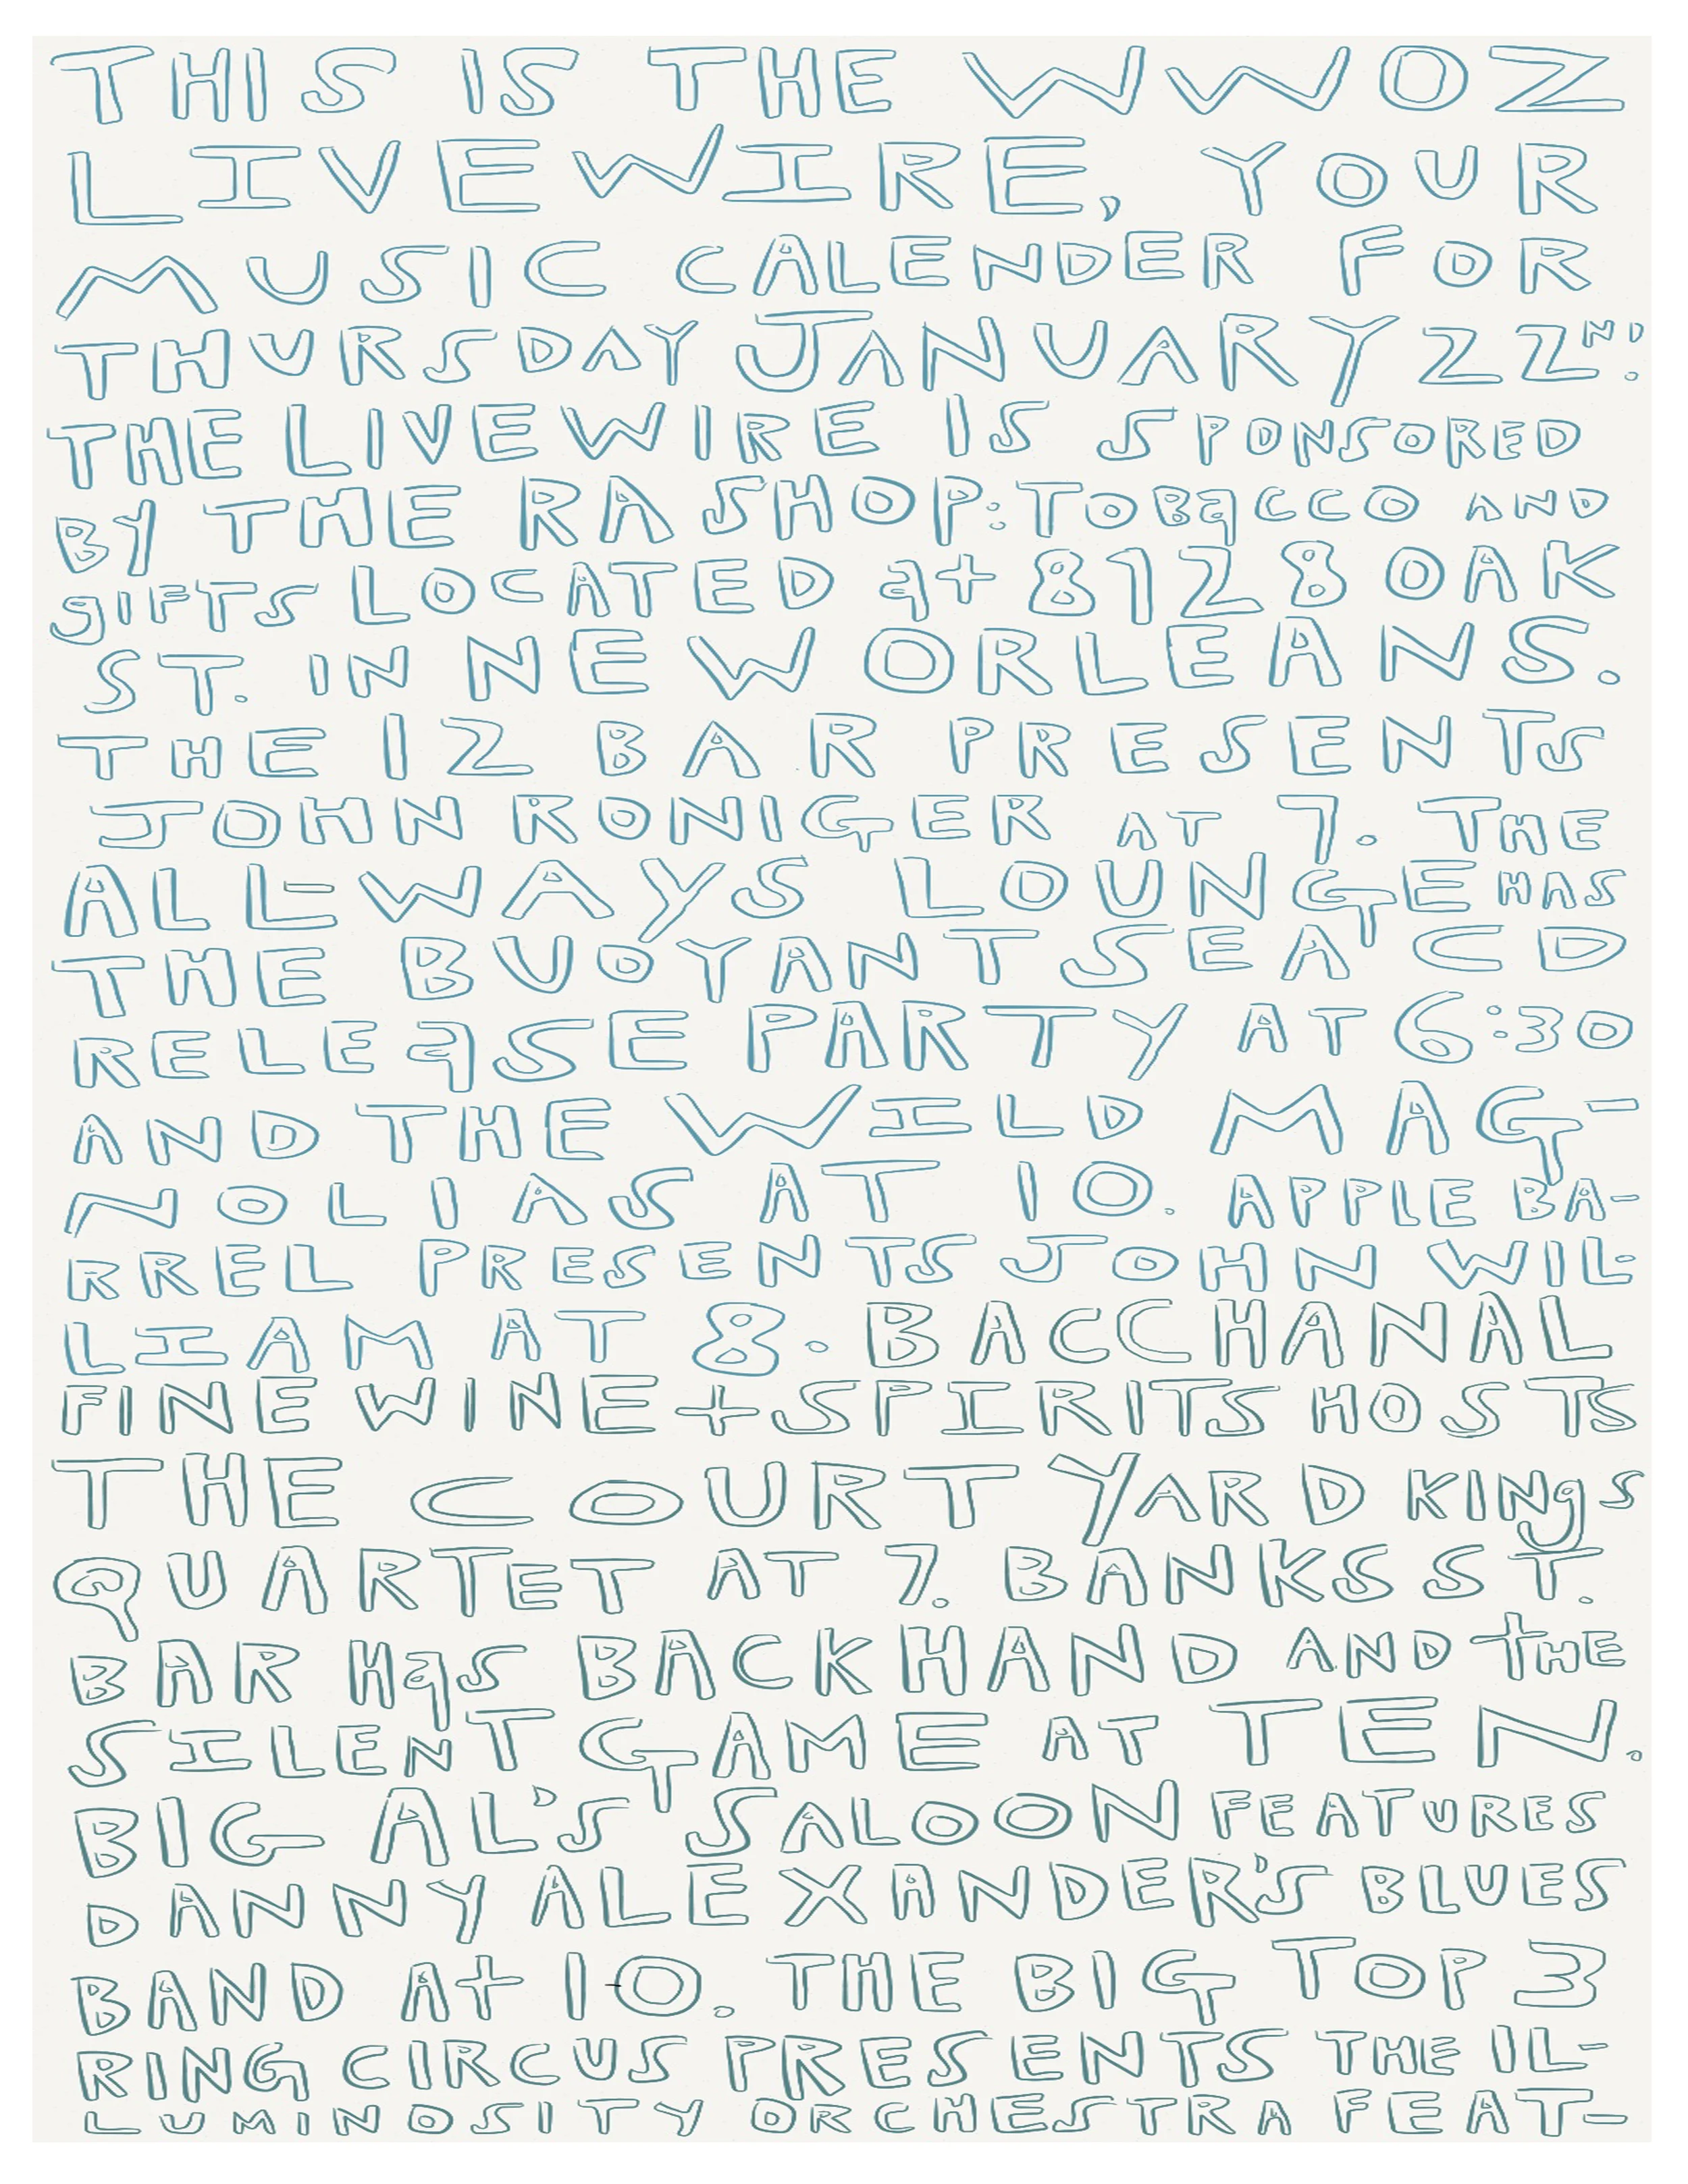 THIS IS THE WWOZ
LIVEWIRE, YOUR
MUSIC CALENDER FOR
THURSDAY JANUARY 22ND.
THE LIVEWIRE IS SPONSORED
BY THE RA SHOP: TOBaCCO AND
gIFTS LOCATED at 8128 OAK
ST. IN NEW ORLEANS.
THE 12 BAR PRESENTS
JOHN RONIGER AT 7. THE
ALL-WAYS LOUNGE HAS
THE BUOYANT SEA CD
RELEaSE PARTY AT 6:30
AND THE WILD MAG-
NOLIAS AT 10. APPLE BA-
RREL PRESENTS JOHN WIL-
LIAM AT 8. BACCHANAL
FINE WINE + SPIRITS HOSTS
THE COURTYARD KINgS
QUARTET AT 7. BANKS ST.
BAR HaS BACKHAND AND tHE
SILENT GAME AT TEN.
BIG AL'S SALOON FEATURES
DANNY ALEXANDER'S BLUES
BAND At 10. THE BIG TOP 3
RING CIRCUS PRESENTS THE IL-
LUMINOSITY ORCHESTRA FEAT-